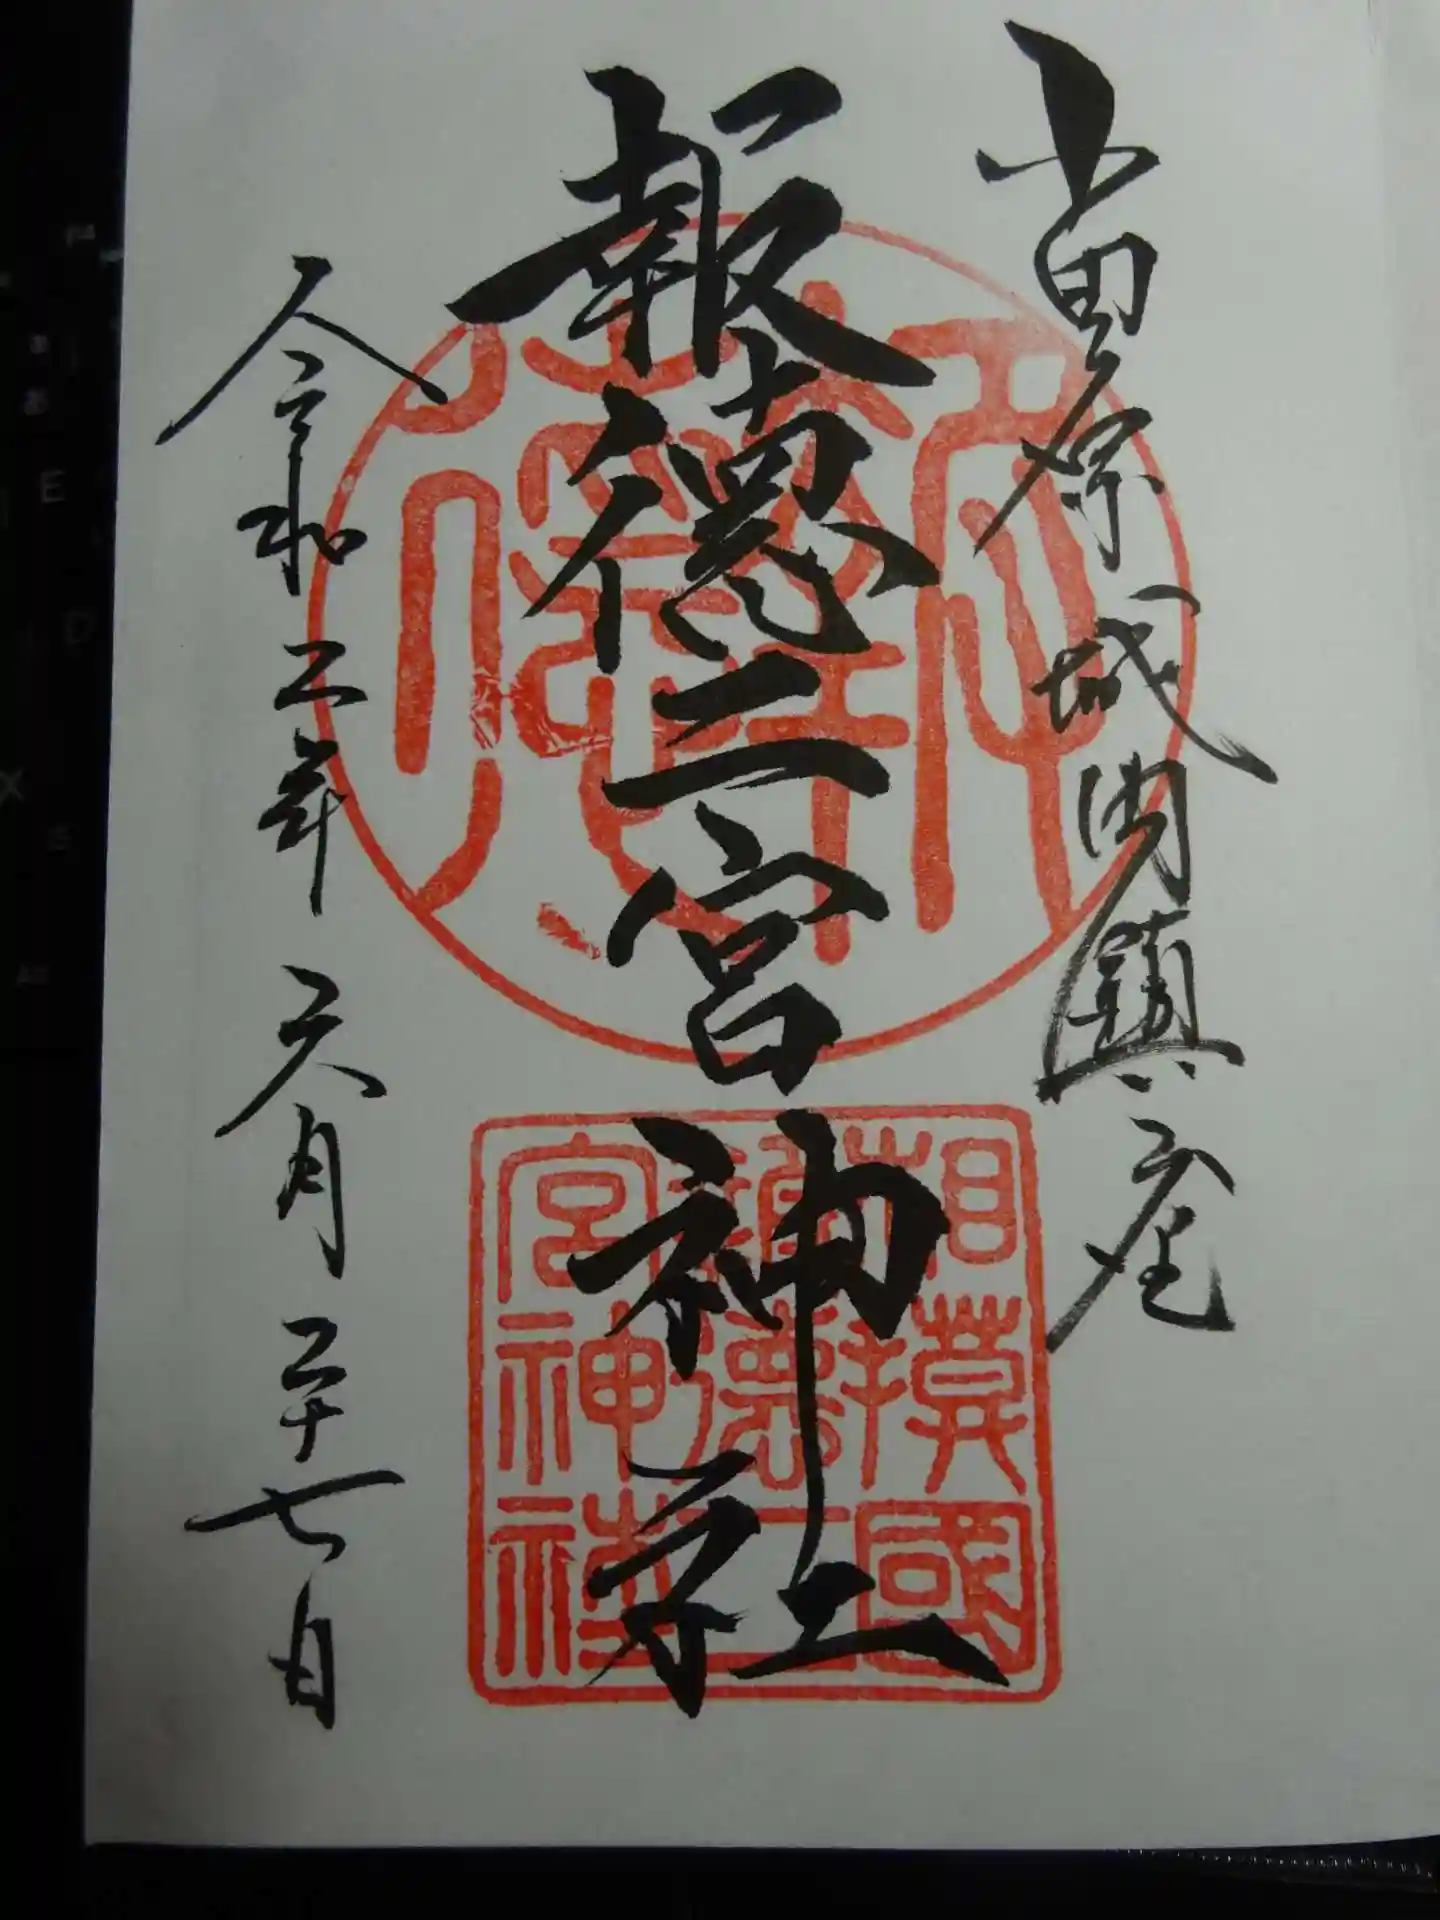 小田原城内鎮座
報徳二宮神社
相模國
報德二
宮神社
令和二年六月二十七日